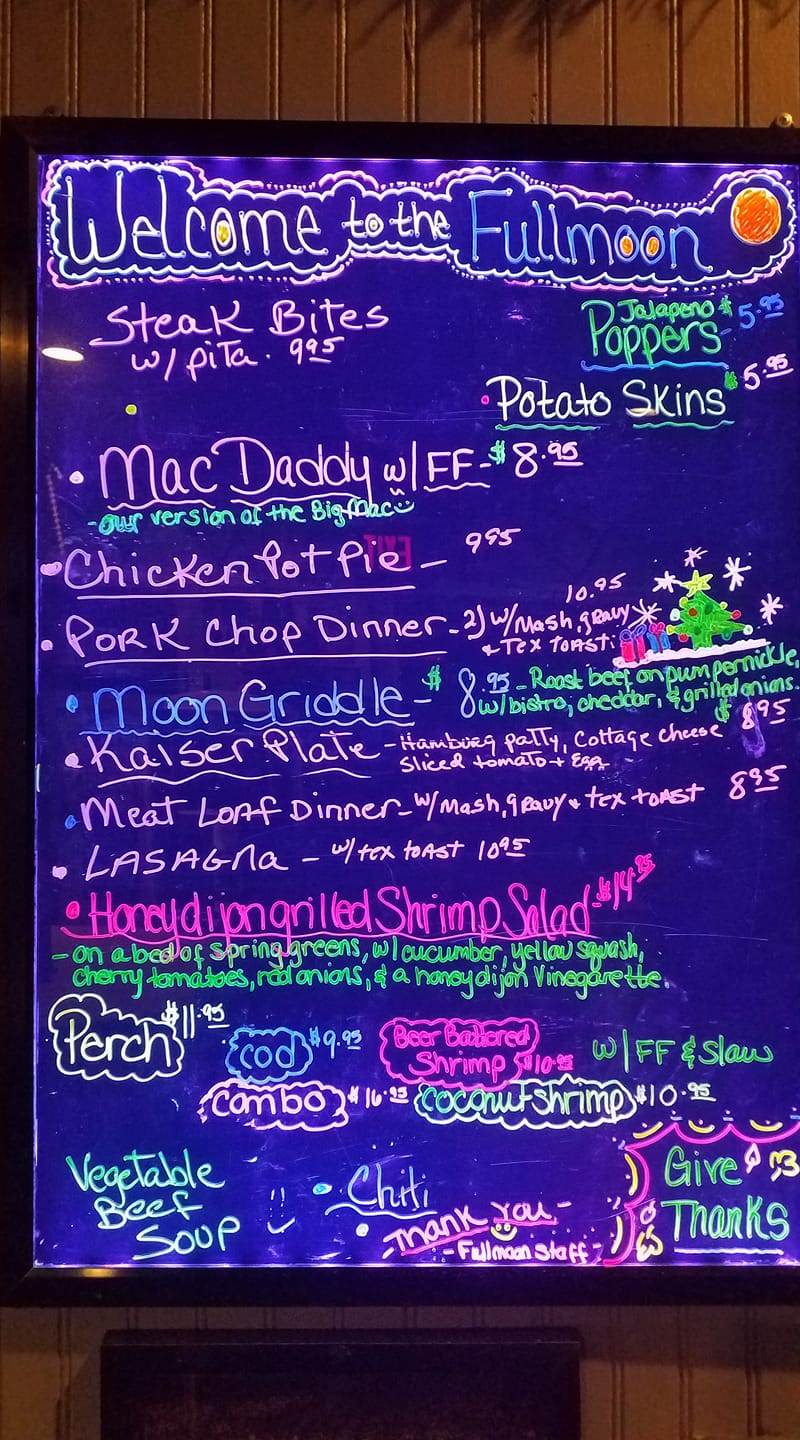 Welcome to the Fullmoon
Steak Bites
w/ pita. 995
Jalapeno $ 5.95
Poppers
Potato Skins $5.95
Mac Daddy w/ FF - $8.95
- our version of the Big Mac
EXIT
Chicken Pot Pie - 995
Pork Chop Dinner - 2) w/ Mash, gravy 10.95
& Tex Toast
Moon Griddle - $8.95 - Roast beef on pumpernickle,
w/ bistro, cheddar, & grilled onions.
Kaiser Plate - Hamburg patty, Cottage cheese $895
Sliced tomato + Egg
Meat Loaf Dinner - w/ Mash, gravy + tex toast 895
LASAGNA - w/ tex toast 1095
Honey dijon grilled Shrimp Salad - $14.95
- on a bed of spring greens, w/ cucumber, yellow squash,
cherry tomatoes, red onions, & a honey dijon Vinegarette.
Perch $11.95
Cod $9.95
Beer Battered
Shrimp $10.95
w/ FF & Slaw
Combo $16.95
Coconut Shrimp $10.95
Vegetable
Beef
Soup
Chili
Thank You -
- Fullmoon Staff -
Give
Thanks